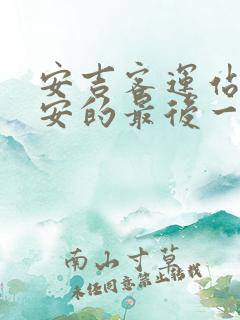 安吉客運佔
安的最後一
南山寸草
未经同意禁止转载